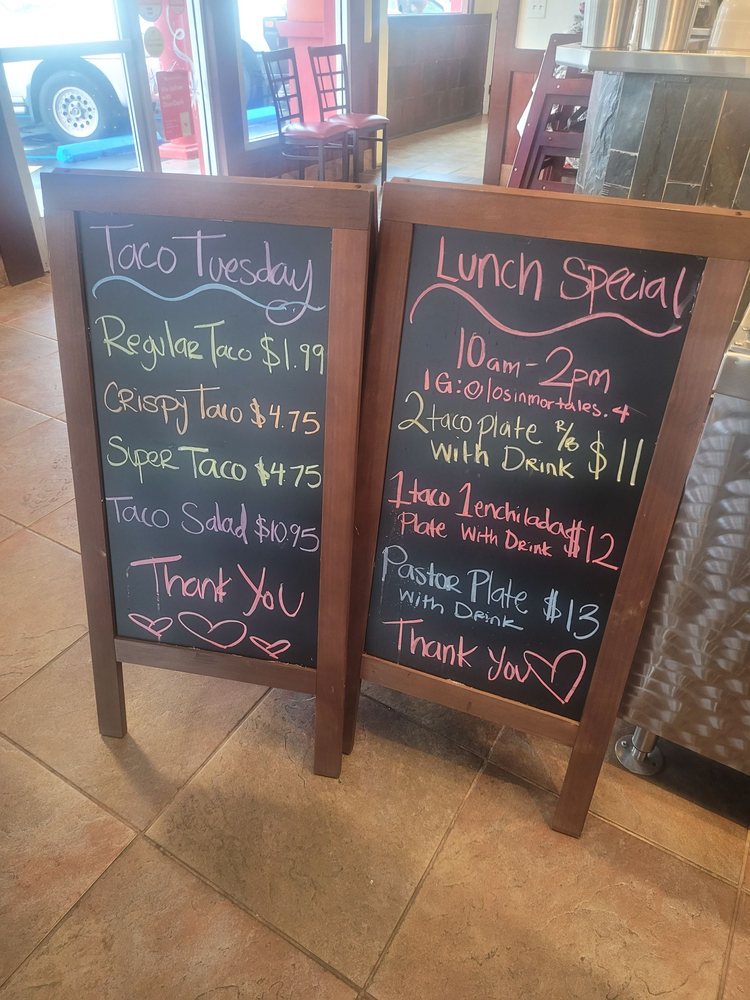 Taco Tuesday
Regular Taco $1.99
Crispy Taco $4.75
Super Taco $4.75
Taco Salad $10.95
Thank You
Lunch Special
10am-2pm
IG:@losinmortales.4
2 taco plate R/B $11
With Drink
1 taco 1 enchilada $12
Plate With Drink
Pastor Plate $13
With Drink
Thank You